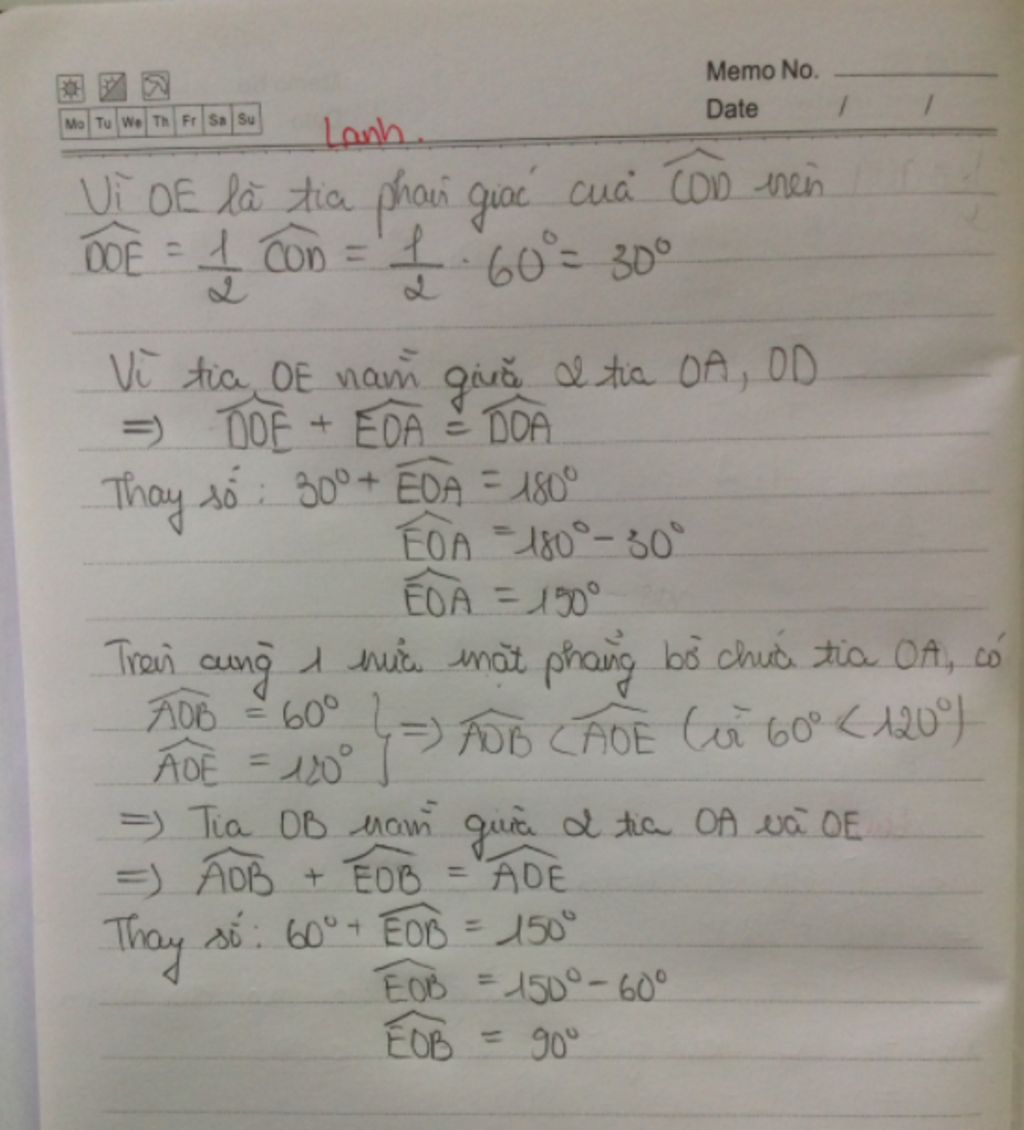 Memo No.
Mo Tu We Th Fr Sa Su
Date / /
Lanh.
Vì OE là tia phân giác của COD nên
DOE = 1/2 COD = 1/2 . 60° = 30°
Vì tia OE nằm giữa 2 tia OA, OD
=> DOE + EOA = DOA
Thay số: 30° + EOA = 180°
EOA = 180° - 30°
EOA = 150°
Trên cùng 1 nửa mặt phẳng bờ chứa tia OA, có
AOB = 60°
AOE = 120° } => AOB < AOE (vì 60° < 120°)
=> Tia OB nằm giữa 2 tia OA và OE
=> AOB + EOB = AOE
Thay số: 60° + EOB = 150°
EOB = 150° - 60°
EOB = 90°